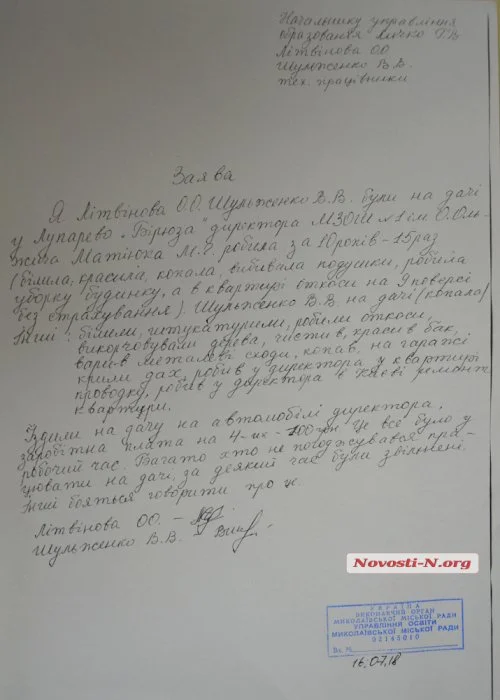 Начальнику управління
образованя Личко Г.В
Літвінова О.О
Шульженко В.В.
тех. працівники
Заява
Я Літвінова О.О. Шульженко В.В. були на дачі
у Лупарево "Бірюза" директора МЗОШ №1 ім О.Оль-
жича Матіюха М.Є. робила за 10 років - 15 раз
(білила, красила, копала, вибивала подушки, робила
уборку будинку, а в квартирі откоси на 9 поверсі
без страхування). Шульженко В.В. на дачі (копала)
Інші: білили, штукатурили, робили откоси,
викорчовували дерева, чистив, красив бак,
варив металеві сходи, копав, на гаражі
крили дах, робив у директора у квартирі
проводку, робив у директора в Києві ремонт
квартири.
Їздили на дачу на автомобілі директора,
заробітна плата на 4-их - 100 грн Це все було у
робочий час. Багато хто не погоджувався пра-
цювати на дачі, за деякий час були звільнені.
Інші бояться говорити про це.
Літвінова О.О. -
Шульженко В.В. -
Novosti-N.org
УКРАЇНА
ВИКОНАВЧИЙ ОРГАН
МИКОЛАЇВСЬКОЇ МІСЬКОЇ РАДИ
УПРАВЛІННЯ ОСВІТИ
МИКОЛАЇВСЬКОЇ МІСЬКОЇ РАДИ
02145010
Вх. №
16.07.18